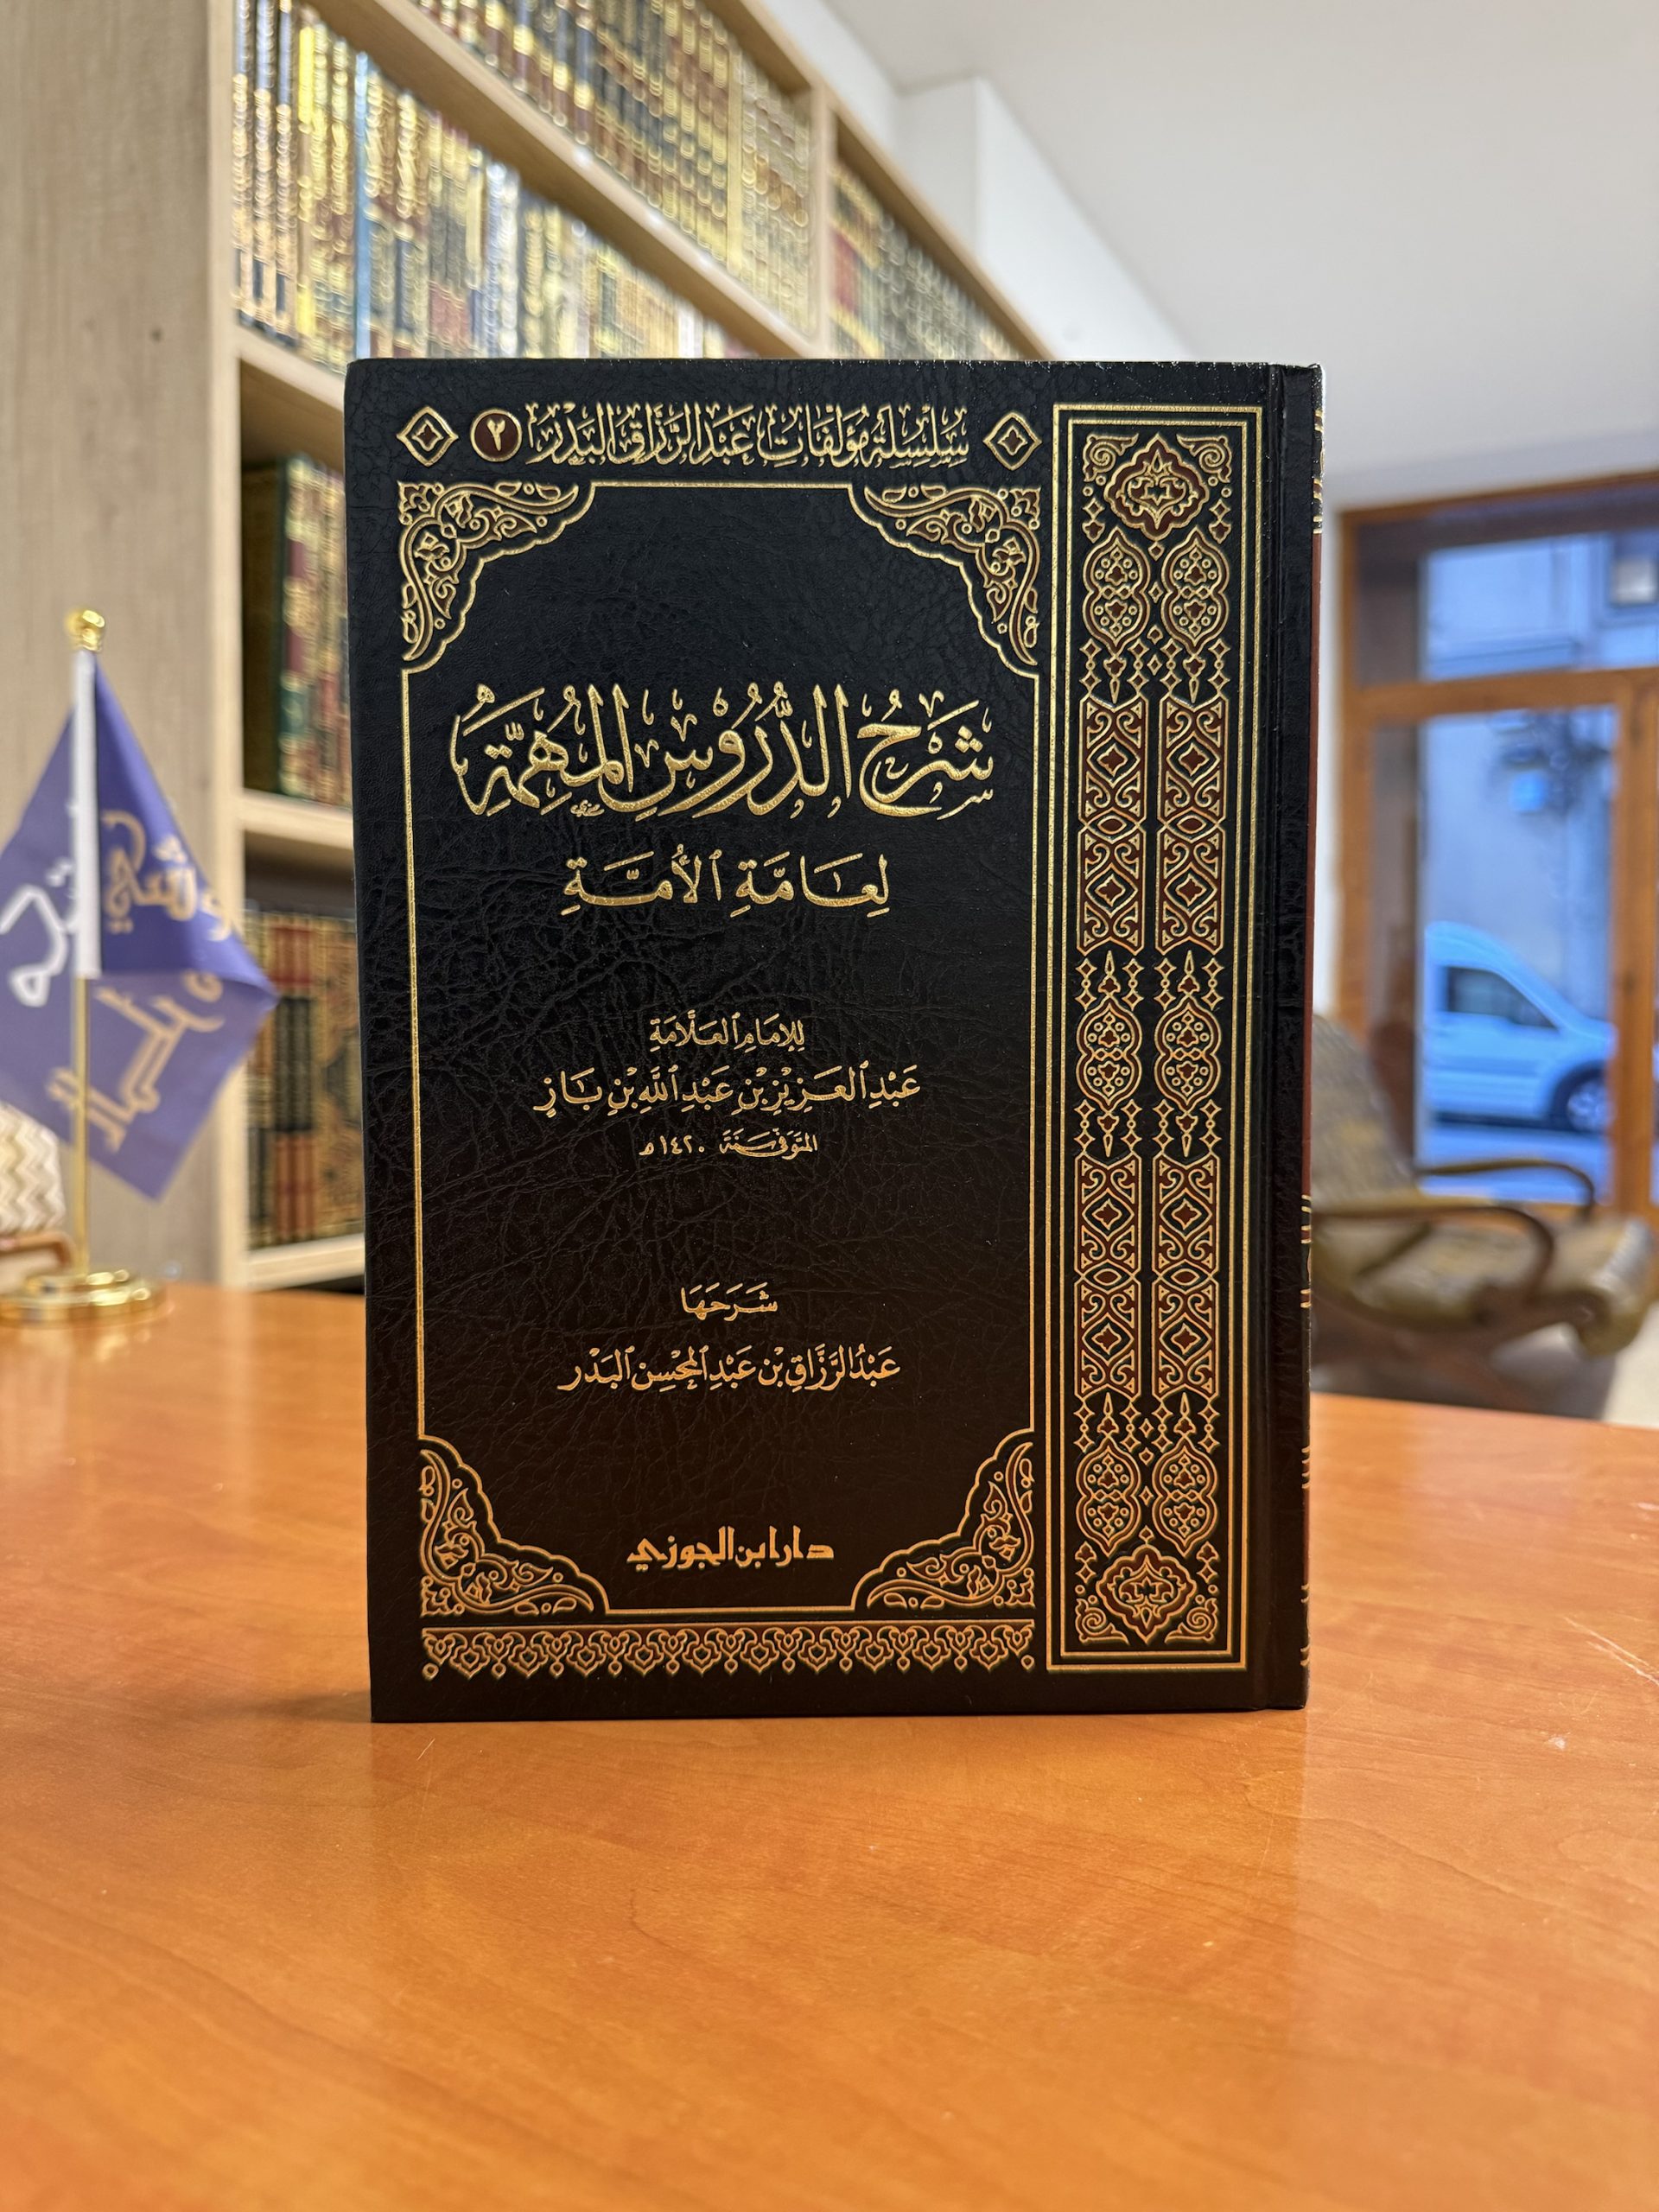 سِلْسِلَةُ مُؤَلَّفَاتِ عَبْدِ الرَّزَّاقِ البَدْرِ ٢
شَرْحُ الدُّرُوْسِ المُهِمَّةِ
لِعَامَّةِ الْأُمَّةِ
لِلْإِمَامِ الْعَلَّامَةِ
عَبْدِ الْعَزِيْزِ بْنِ عَبْدِ اللَّهِ بْنِ بَازٍ
المُتَوَفَّى سَنَةَ ١٤٢٠ هـ
شَرَحَهَا
عَبْدُ الرَّزَّاقِ بْن عَبْدِ الْمُحْسِنِ الْبَدْر
دار ابن الجوزي